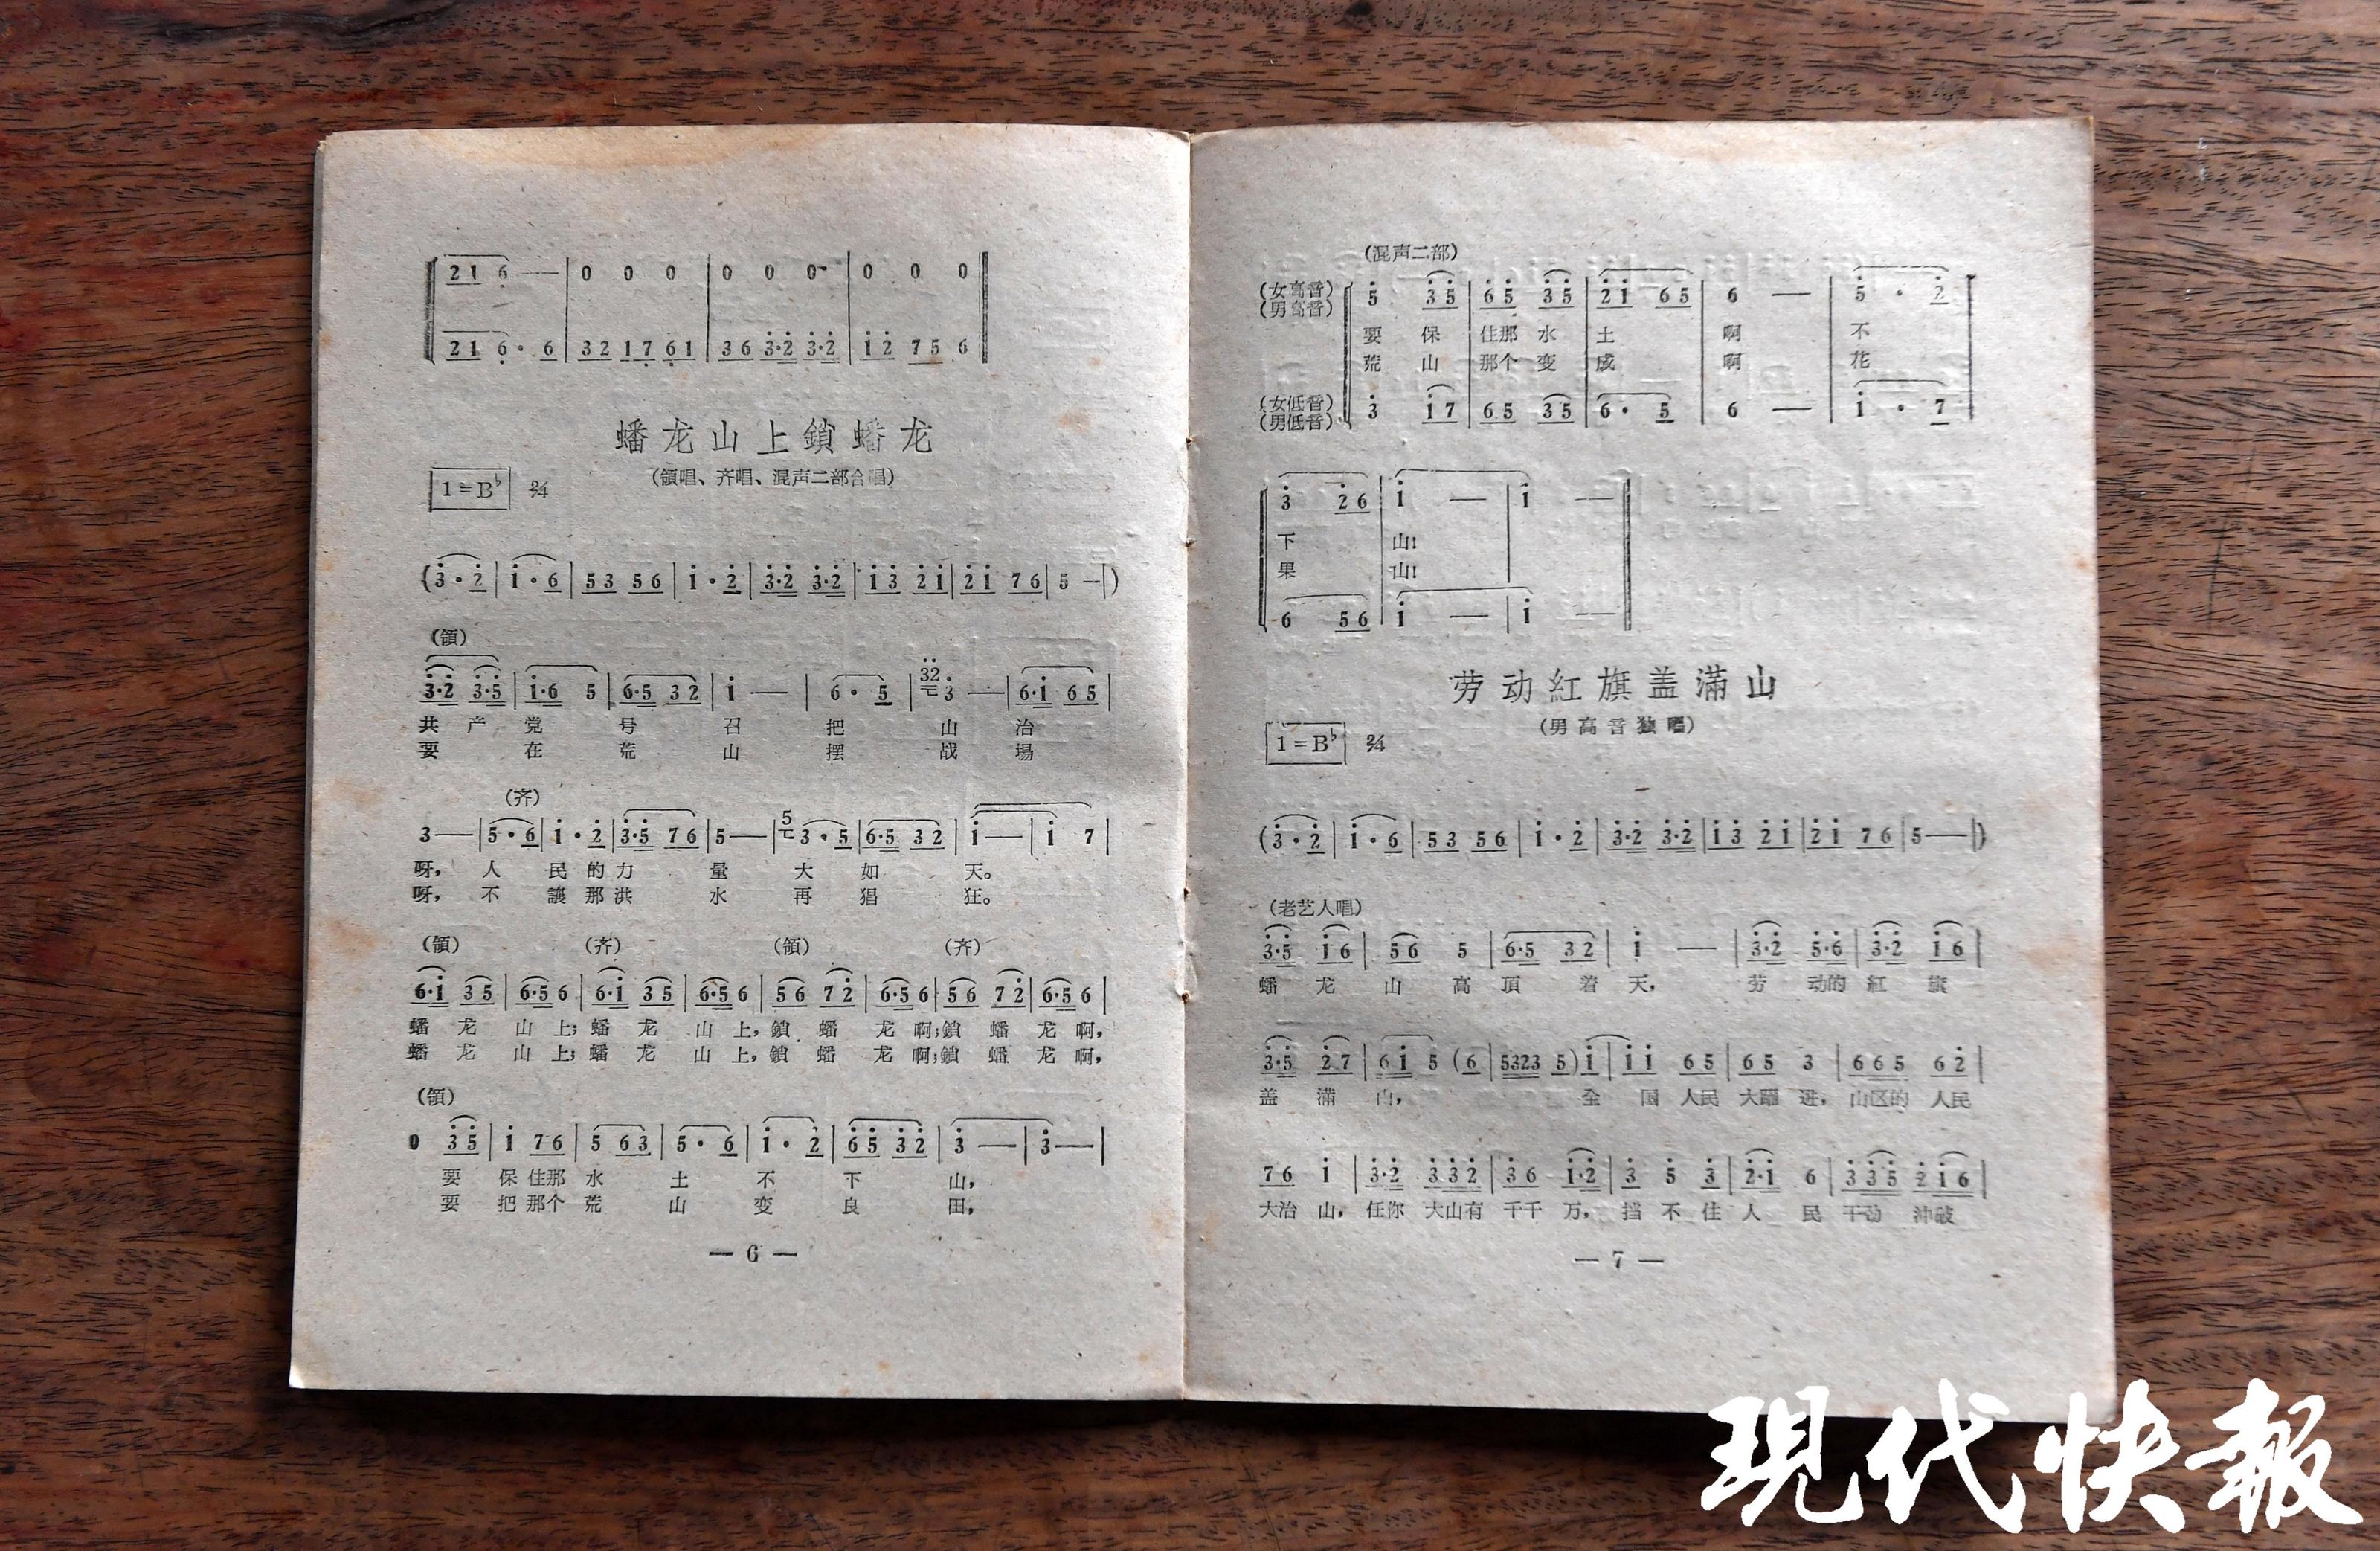 21 6 — | 0 0 0 | 0 0 0 | 0 0 0
21 6· 6 | 32 17 61 | 36 3·2 3·2 | 12 75 6
蟠龙山上鎖蟠龙
(領唱、齐唱、混声二部合唱)
1=B♭ 2/4
(3·2 | 1·6 | 53 56 | 1·2 | 3·2 3·2 | 13 21 | 21 76 | 5 — |)
(領)
3·2 3·5 | 1·6 5 | 6·5 32 | 1 — | 6·5 | 32 3 — | 6·1 65 |
共产党号召把山治
要在荒山摆战場
(齐)
3 — | 5·6 | 1·2 | 3·5 76 | 5 — | 5 3·5 | 6·5 32 | 1 — | 1 7 |
呀，人民的力量大如天。
呀，不讓那洪水再猖狂。
(領) (齐) (領) (齐)
6·1 35 | 6·5 6 | 6·1 35 | 6·5 6 | 56 72 | 6·5 6 | 56 72 | 6·5 6 |
蟠龙山上；蟠龙山上，鎖蟠龙啊；鎖蟠龙啊，
蟠龙山上；蟠龙山上，鎖蟠龙啊；鎖蟠龙啊，
(領)
0 35 | 1 76 | 5 63 | 5·6 | 1·2 | 65 32 | 3 — | 3 — |
要保住那水土不下山，
要把那个荒山变良田，
— 6 —
(混声二部)
(女高音)
(男高音)
5 35 | 65 35 | 21 65 | 6 — | 5·2
要保住那水土啊不
荒山那个变成啊花
(女低音)
(男低音)
3 17 | 65 35 | 6·5 | 6 — | 1·7
3 26 | 1 — | 1 —
下山！
果山！
6 56 | 1 — | 1 —
劳动紅旗盖滿山
(男高音独唱)
1=B♭ 2/4
(3·2 | 1·6 | 53 56 | 1·2 | 3·2 3·2 | 13 21 | 21 76 | 5 — |)
(老艺人唱)
3·5 16 | 56 5 | 6·5 32 | 1 — | 3·2 5·6 | 3·2 16 |
蟠龙山高頂着天，劳动的紅旗
3·5 27 | 61 5 (6 | 5323 5) 1 | 11 65 | 65 3 | 665 62 |
盖滿山，全国人民大躍进，山区的人民
76 1 | 3·2 332 | 36 1·2 | 3 5 3 | 2·1 6 | 335 216 |
大治山，任你大山有千千万，挡不住人民干劲冲破
— 7 —
現代快報